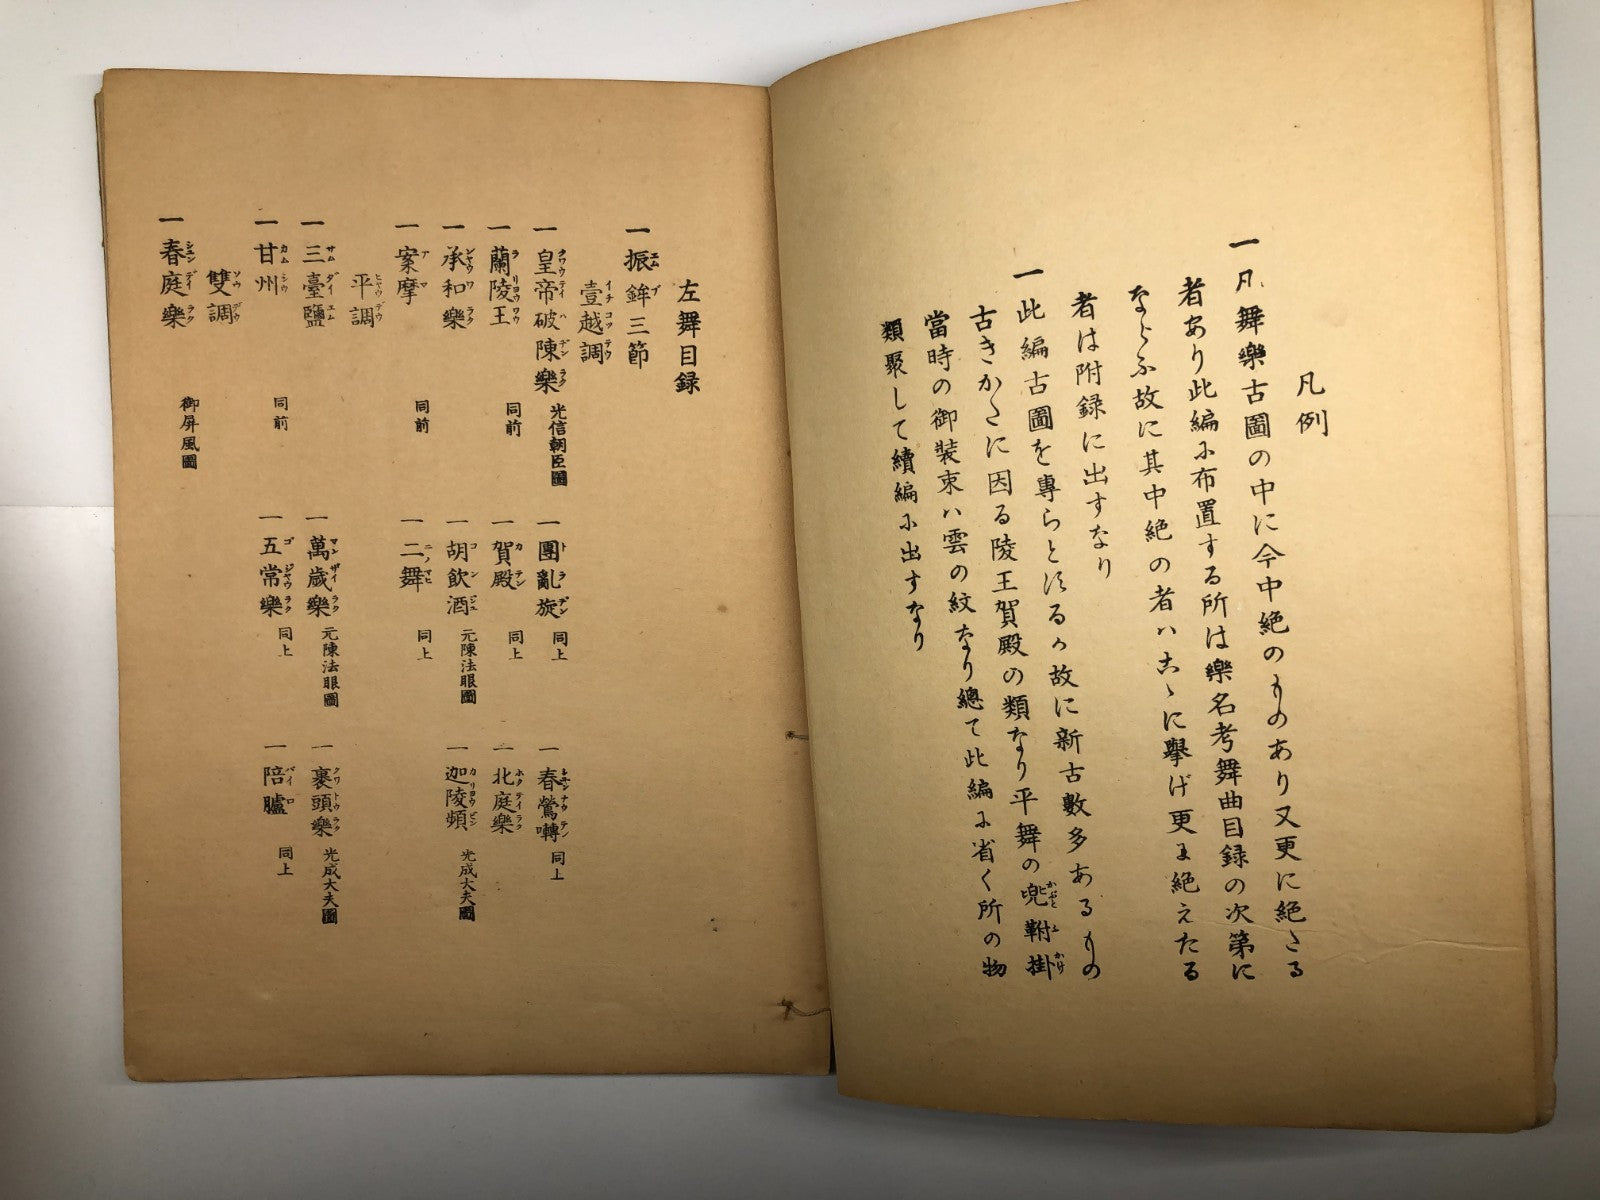 凡例
一凡舞樂古圖の中に今中絶のものあり又更に絶さる
者あり此編に布置する所は樂名考舞曲目録の次第に
ならふ故に其中絶の者ハこゝに擧げ更に絶えたる
者は附録に出すなり
一此編古圖を專らとするか故に新古數多あるもの
古きかたに因る陵王賀殿の類なり平舞の兜鞘掛
當時の御裝束ハ雲の紋なり總て此編に省く所の物
類聚して續編に出すなり
左舞目録
一振鉾三節
壹越調
一皇帝破陳樂 光信朝臣圖 一團亂旋 同上 一春鶯囀 同上
一蘭陵王 同前 一賀殿 同上 一北庭樂
一承和樂 一胡飲酒 元陳法眼圖 一迦陵頻 光成大夫圖
一案摩 同前 一二舞 同上
平調
一三臺鹽 一萬歲樂 元陳法眼圖 一裹頭樂 光成大夫圖
一甘州 同前 一五常樂 同上 一陪臚 同上
雙調
一春庭樂 御屏風圖